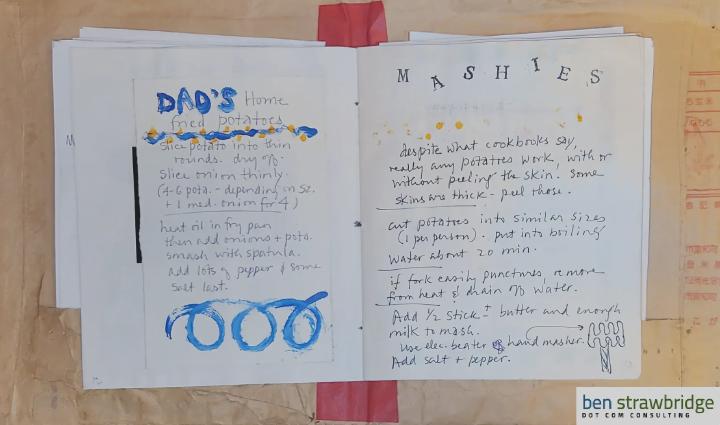 DAD'S Home
fried potatoes
slice potato into thin
rounds. dry off.
slice onion thinly.
(4-6 pota. - depending on sz.
+ 1 med. onion for 4)
heat oil in fry pan
then add onions + pota.
smash with spatula.
add lots of pepper & some
salt last.
MASHIES
despite what cookbooks say,
really any potatoes work, with or
without peeling the skin. some
skins are thick - peel those.
cut potatoes into similar sizes
(1 per person). put into boiling
water about 20 min.
if fork easily punctures, remove
from heat & drain off water.
Add 1/2 stick ± butter and enough
milk to mash.
Use elec. beater or hand masher.
Add salt + pepper.
ben strawbridge
DOT COM CONSULTING